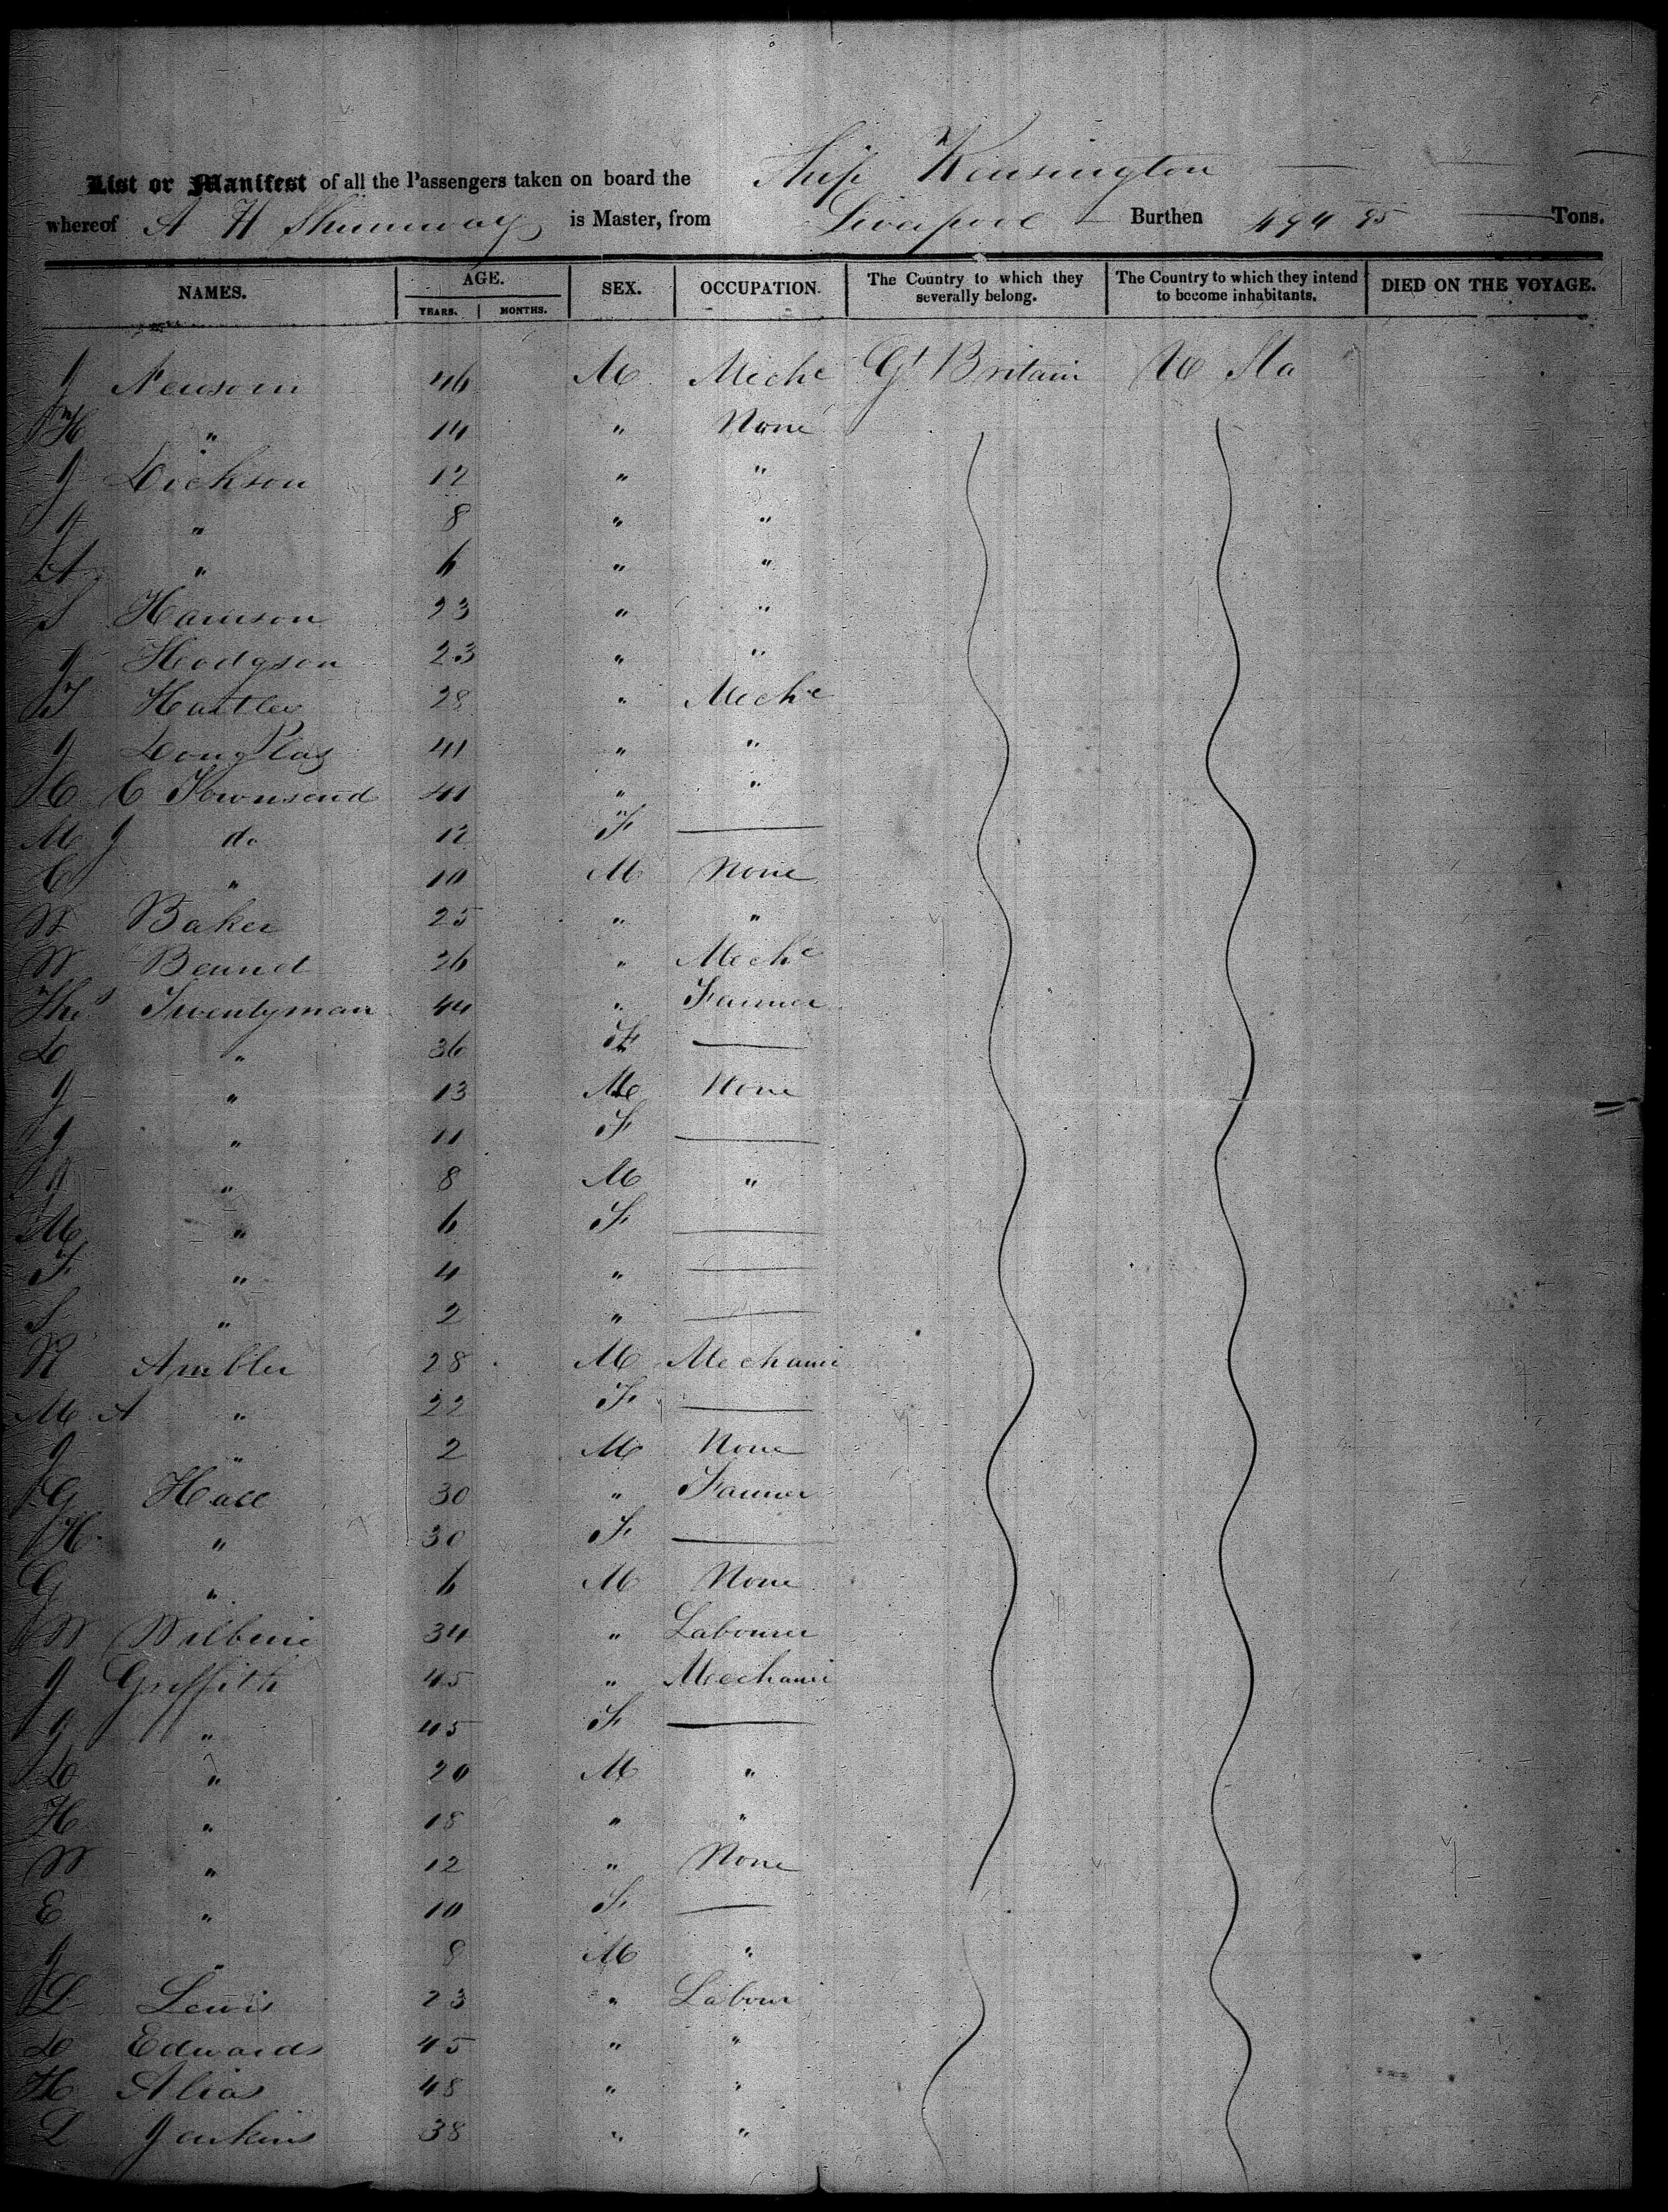 List or Manifest of all the Passengers taken on board the Ship Kensington
whereof A H Shumway is Master, from Liverpool Burthen 494 95 Tons.
NAMES. AGE. YEARS. MONTHS. SEX. OCCUPATION. The Country to which they severally belong. The Country to which they intend to become inhabitants. DIED ON THE VOYAGE.
J Newsom 46 M Mechc Gt Britain U Sta
H " 14 " None
J Dickson 12 " "
A " 8 " "
A " 6 " "
S Harrison 23 " "
J Hodgson 23 " "
T Hartley 28 " Mechc
J Douglas 41 " "
C Townsend 41 " "
M J do 12 F
C " 10 M None
W Baker 25 " "
W 26 " Mechc
Thos Twentyman 44 " Farmer
D " 36 F
J " 13 M None
J " 11 F
" 8 M "
M " 6 F
F " 4 "
S " 2 "
R Ambler 28 M Mechanic
M A " 22 F
J " 2 M None
G Hall 30 " Farmer
H " 30 F
G " 6 M None
W 34 " Labourer
J Griffith 45 " Mechanic
J " 45 F
D " 20 M "
H " 18 " "
W " 12 " None
E " 10 F
J " 8 M "
L Lewis 23 " Labour
D Edwards 45 " "
H 48 " "
L Jenkins 38 " "